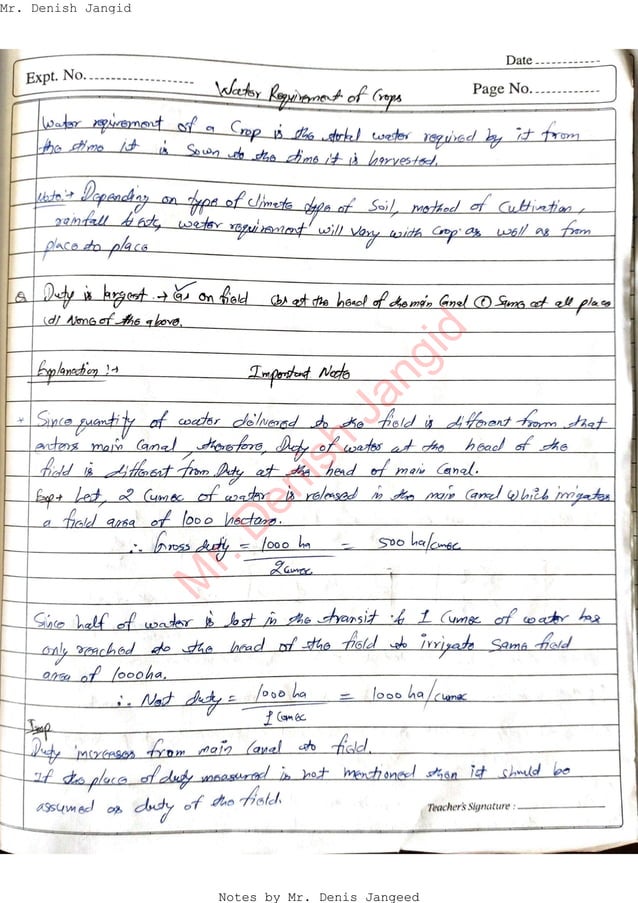 Mr. Denish Jangid
Date
Expt. No.
Water Requirement of Crops
Page No.
Water requirement of a Crop is the total water required by it from
the time it is sown to the time it is harvested.
Note:→ Depending on type of climate type of Soil, method of Cultivation,
rainfall &etc, water requirement will vary with crop as well as from
place to place
Q Duty is largest → (a) on field (b) at the head of the main Canal (c) Same at all place
(d) None of the above.
Explanation :→ Important Note
* Since quantity of water delivered to the field is different from that
enters main Canal, therefore, Duty of water at the head of the
field is different from Duty at the head of main Canal.
Exp→ Let, 2 Cumec of water is released in the main Canal which irrigates
a field area of 1000 hectare.
∴ Gross duty = 1000 ha = 500 ha/cumec
2 cumec
Since half of water is lost in the transit & 1 Cumec of water has
only reached to the head of the field to irrigate same field
area of 1000ha.
∴ Net duty = 1000 ha = 1000 ha/cumec
1 Cumec
Imp
Duty increases from main Canal to field.
If the place of duty measured is not mentioned then it should be
assumed as duty of the field.
Teacher's Signature :
Mr. Denish Jangid
Notes by Mr. Denis Jangeed